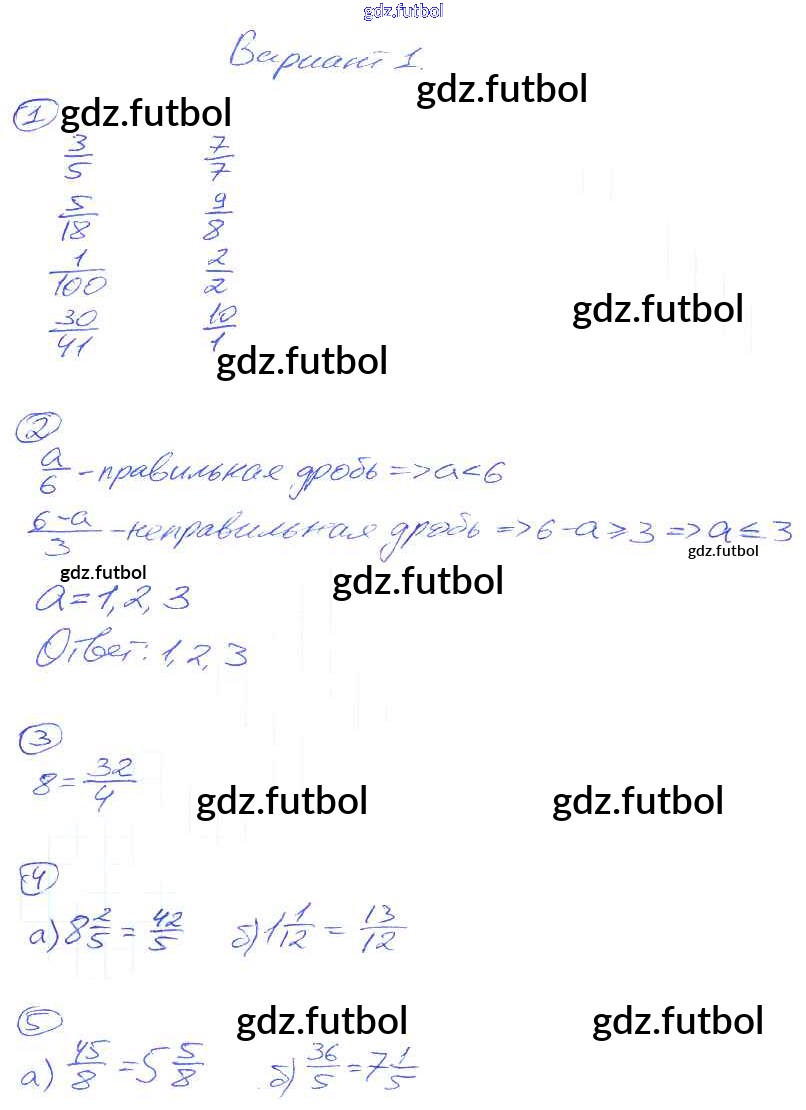 gdz.futbol
Вариант 1.
gdz.futbol
① gdz.futbol
3/5 7/7
5/18 9/8
1/100 2/2
gdz.futbol
30/41 10/1
gdz.futbol
②
a/6 - правильная дробь => a < 6
6-a/3 - неправильная дробь => 6-a ≥ 3 => a ≤ 3
gdz.futbol
gdz.futbol gdz.futbol
a = 1, 2, 3
Ответ: 1, 2, 3
③
8 = 32/4
gdz.futbol gdz.futbol
④
а) 8 2/5 = 42/5 б) 1 1/12 = 13/12
⑤ gdz.futbol gdz.futbol
а) 45/8 = 5 5/8 б) 36/5 = 7 1/5